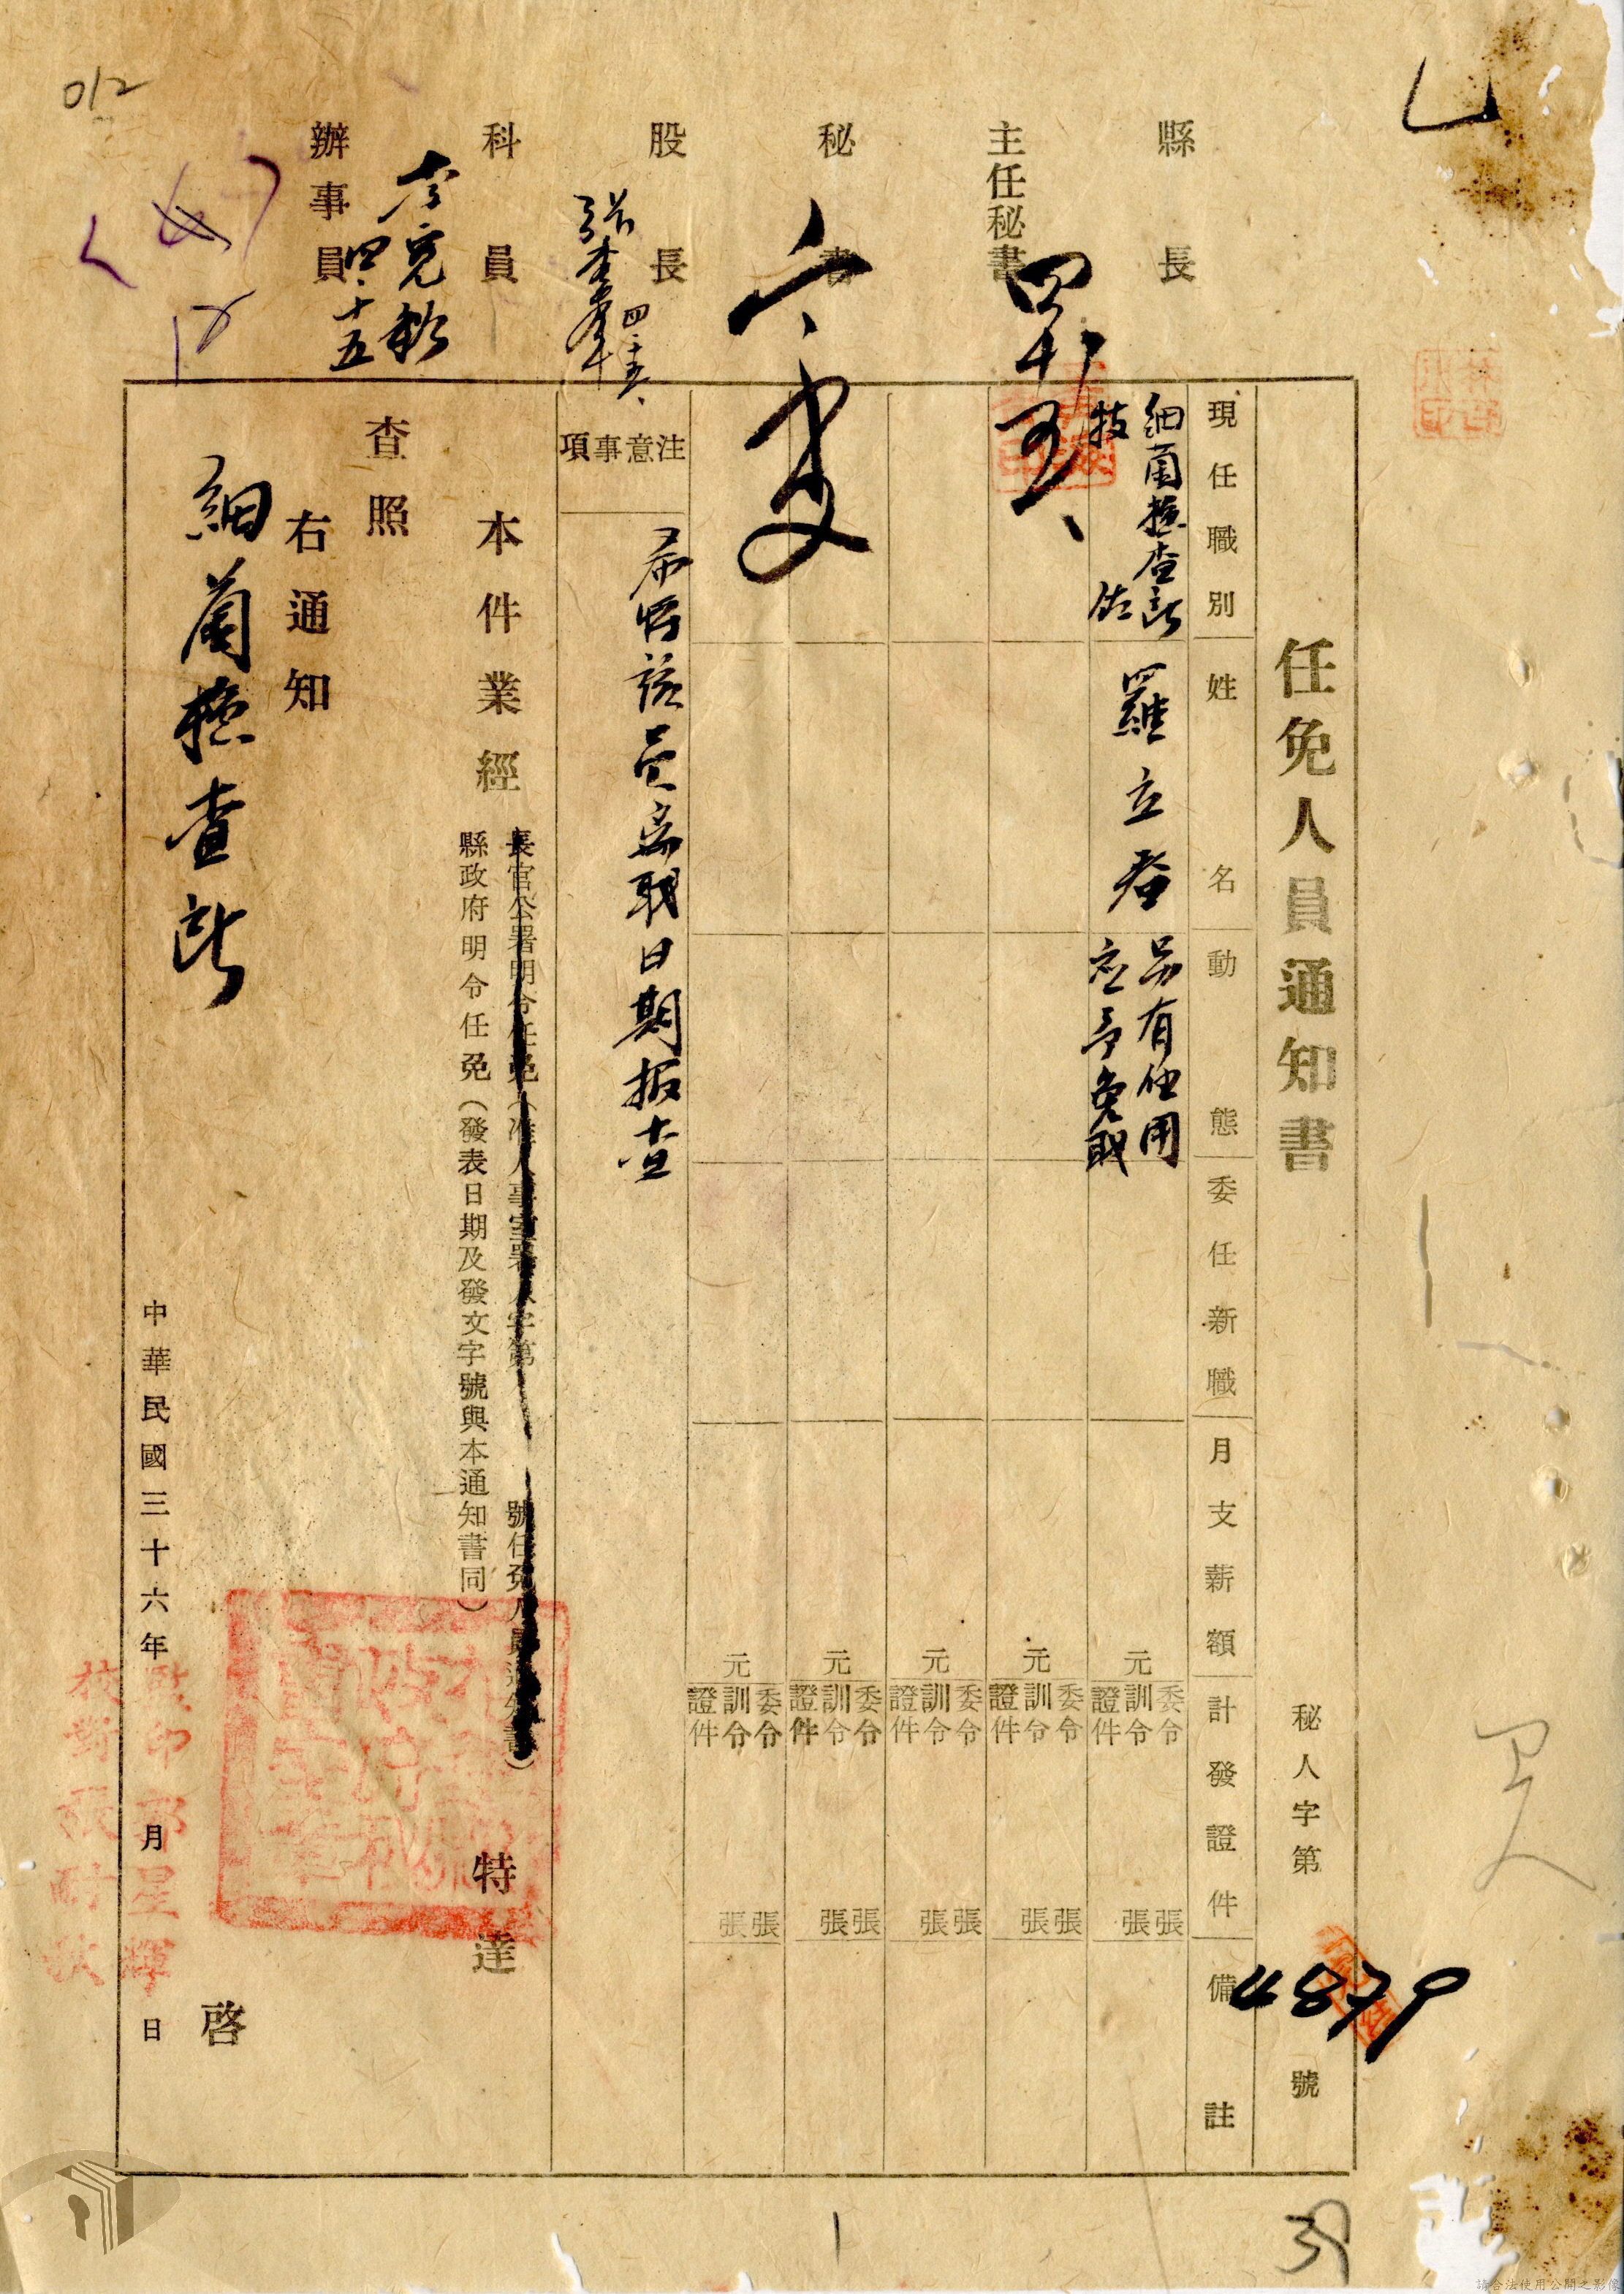 012
縣長
主任秘書
四廿五
秘書
股長
四、十五、
科員
辦事員
四.十五
任免人員通知書
秘人字第4879號
現任職別
姓名
動態
委任新職
月支薪額
計發證件
備註
細菌檢查所
技佐
羅立春
另有任用
應予免職
元
委令 張
訓令 張
證件
元
委令 張
訓令 張
證件
元
委令 張
訓令 張
證件
元
委令 張
訓令 張
證件
元
委令 張
訓令 張
證件
注意事項
希將該員離職日期報查
本件業經
長官公署明令任免(准人事室署人字第 號任免人員通知書)
縣政府明令任免(發表日期及發文字號與本通知書同)
特達
查照
右通知
細菌檢查所
啓
中華民國三十六年 月 日
監印郭星輝
校對張耐秋
39
請合法使用公開之影像